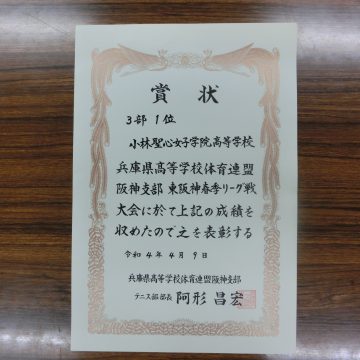 賞状
3部 1位
小林聖心女子学院高等学校
兵庫県高等学校体育連盟
阪神支部 東阪神春季リーグ戦
大会に於て上記の成績を
収めたので之を表彰する
令和 4年 4月 9日
兵庫県高等学校体育連盟阪神支部
テニス部部長 阿形 昌宏